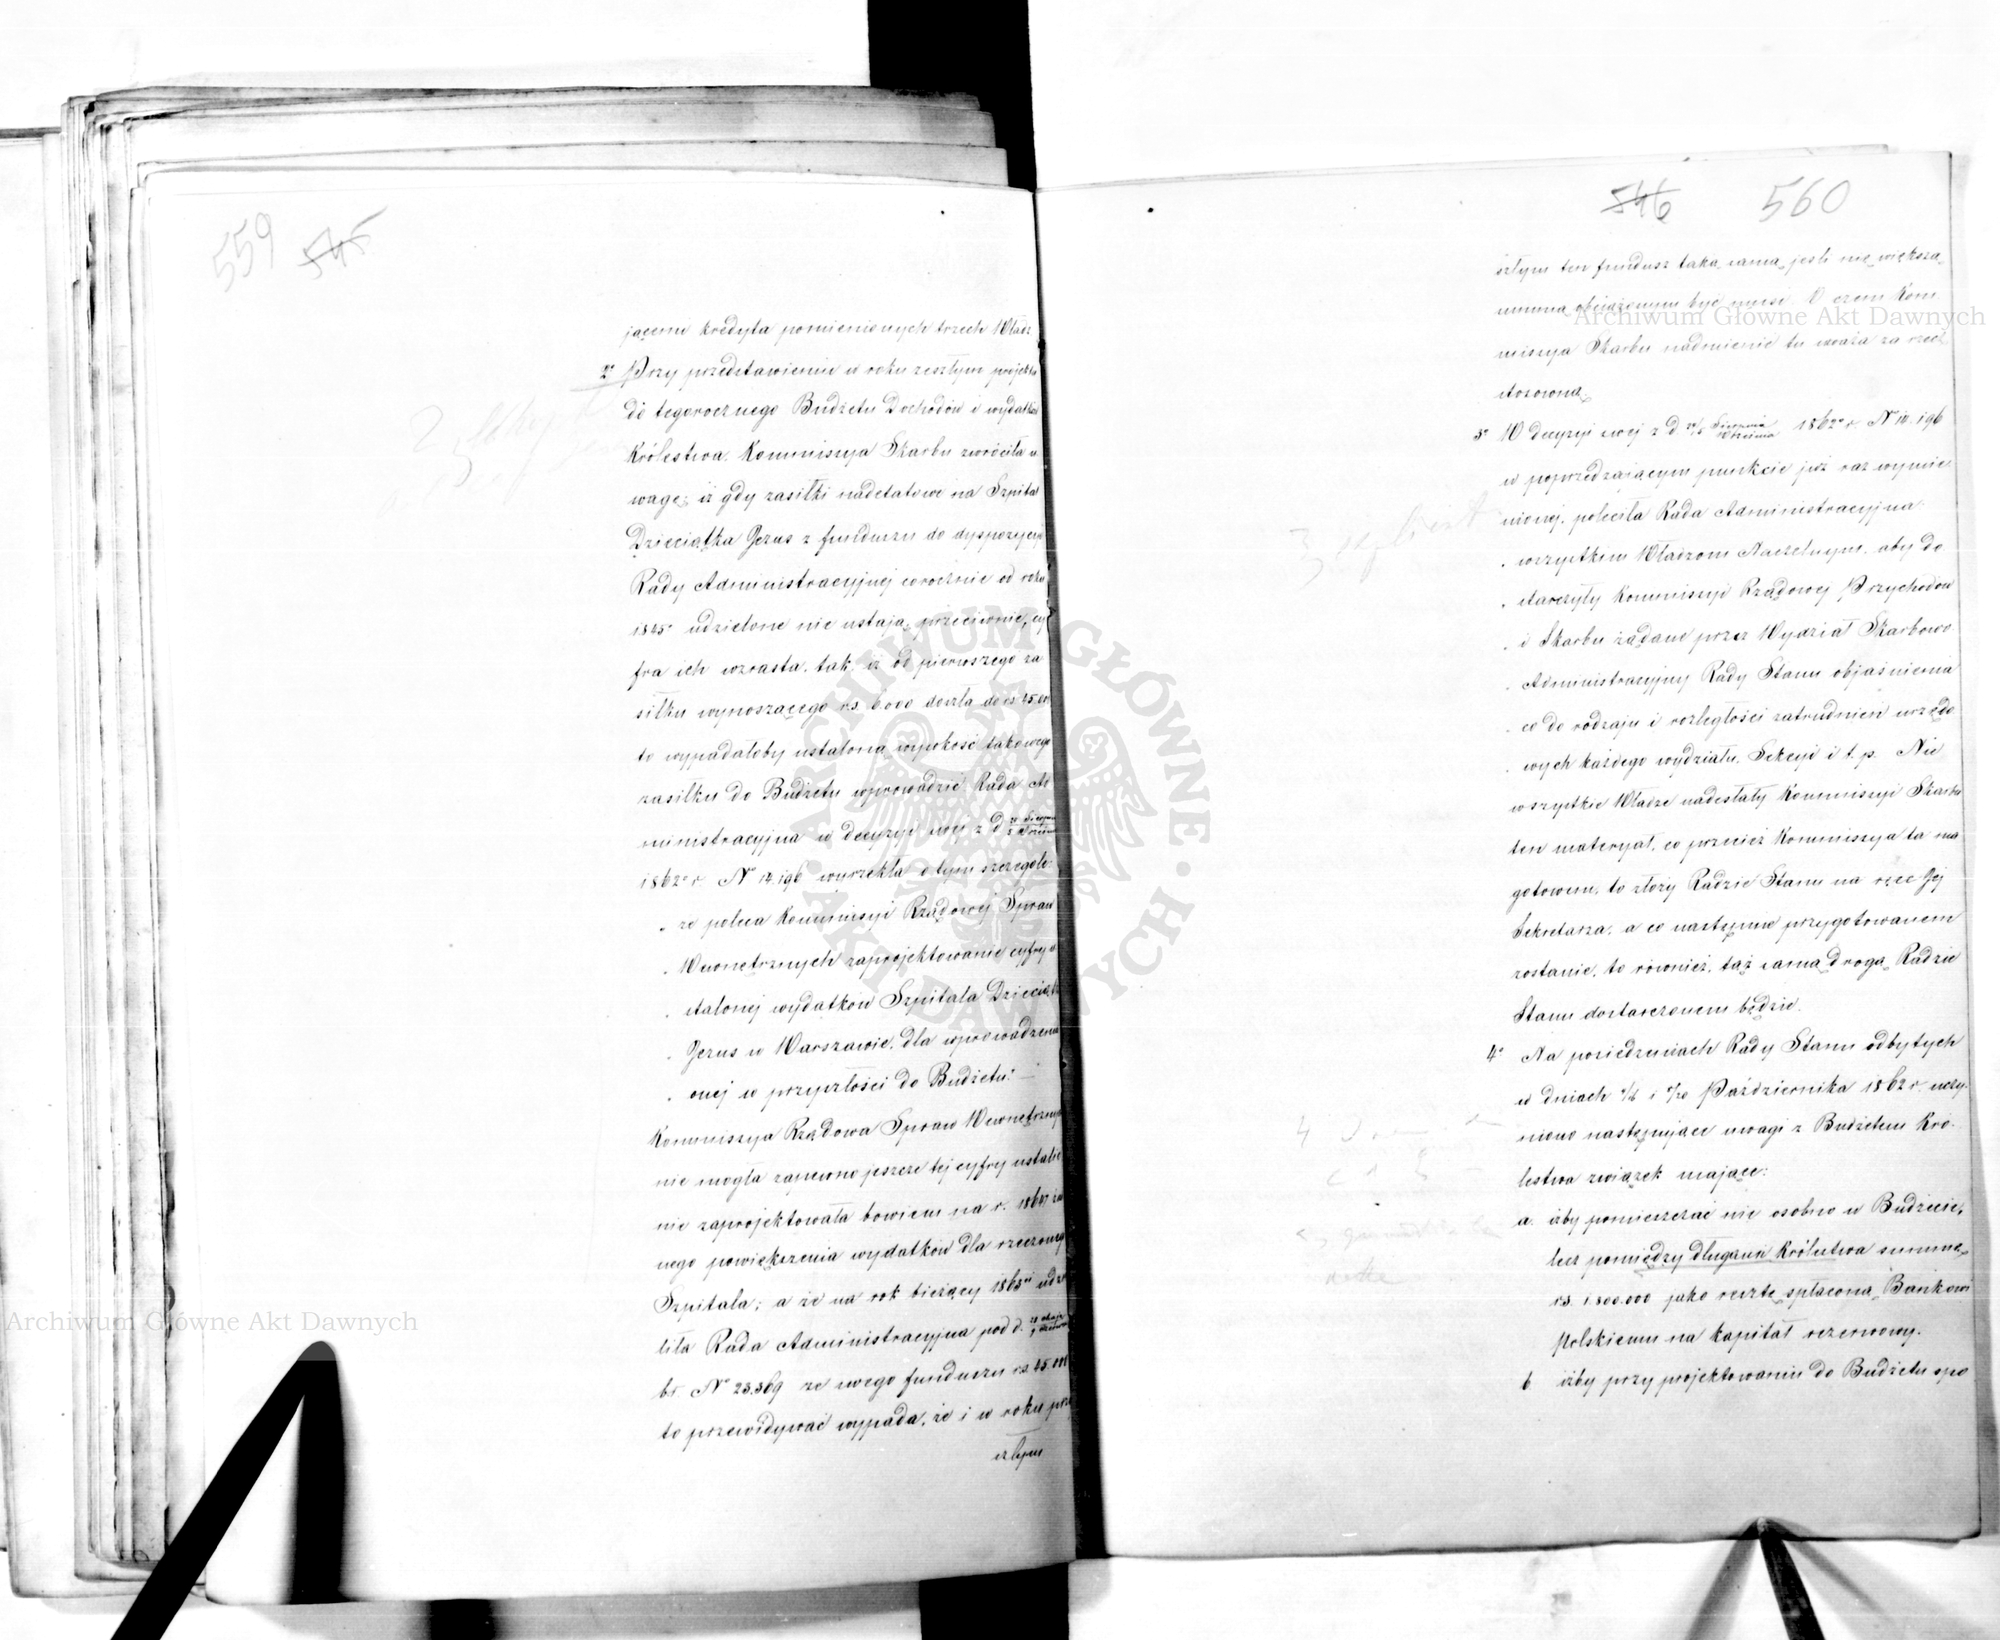 559 545
jącemi kredyta pomienionych trzech Władz
2° Przy przedstawieniu w roku zeszłym projektu
do tegorocznego Budżetu Dochodów i wydatków
Królestwa, Kommissya Skarbu zwróciła u
wagę, iż gdy zasiłki nadetatowe na Szpital
Dzieciątka Jezus z funduszu do dyspozycyi
Rady Administracyjnej corocznie od roku
1845° udzielone nie ustają, przeciwnie, cy
fra ich wzrasta, tak, iż od pierwszego za
siłku wynoszącego rs. 6000 doszła do rs 45.000
to wypadałoby ustaloną wysokość takowego
zasiłku do Budżetu wprowadzić. Rada Ad
ministracyjna w decyzyi swej z d
1862° r. N° 14.196 wyrzekła o tym szczególe
„ że poleca Kommissyi Rządowej Spraw
„ Wewnętrznych zaprojektowanie cyfry u
„ stalonej wydatków Szpitala Dzieciątka
„ Jezus w Warszawie, dla wprowadzenia
„ onej w przyszłości do Budżetu."
Kommissya Rządowa Spraw Wewnętrznych
nie mogła zapewne jeszcze tej cyfry ustalić
nie zaprojektowała bowiem na r. 1864
nego powiększenia wydatków dla rzeczonego
Szpitala; a że na rok bieżący 1863 udzie
liła Rada Administracyjna pod d.
br. N° 23.369 ze swego funduszu rs. 45.000
to przewidywać wypada, że i w roku przy
szłym
546 560
szłym ten fundusz taką samą, jeśli nie większą
summą obciążonym być musi. O czem Kom
missya Skarbu nadmienić tu uważa za rzecz
stosowną.
3° W decyzyi swej z d Sierpnia Września 1862° r. N° 14.196
w poprzedzającym punkcie już raz wymie
nionej, poleciła Rada Administracyjna
„ wszystkim Władzom Naczelnym, aby do
„ starczyły Kommissyi Rządowej Przychodów
„ i Skarbu żądane przez Wydział Skarbowo
„ Administracyjny Rady Stanu objaśnienia
„ co do rodzaju i rozległości zatrudnień urzędo
„ wych każdego wydziału, Sekcyi i t. p. Nie
wszystkie Władze nadesłały Kommissyi Skarbu
ten materyał, co przecież Kommissya ta ma
gotowem, to złoży Radzie Stanu na ręce Jej
Sekretarza, a co następnie przygotowanem
zostanie, to również, tąż samą drogą, Radzie
Stanu dostarczonem będzie.
4° Na posiedzeniach Rady Stanu odbytych
w dniach i Października 1862 r. uczy-
niono następujące uwagi z Budżetem Kró-
lestwa związek mające:
a. iżby pomieszczać nie osobno w Budżecie,
lecz pomiędzy długami Królestwa summę
rs. 1.800.000 jako resztę spłaconą Bankowi
Polskiemu na kapitał rezerwowy.
b iżby przy projektowaniu do Budżetu spo
Archiwum Główne Akt Dawnych
Archiwum Główne Akt Dawnych
ARCHIWUM GŁÓWNE AKT DAWNYCH